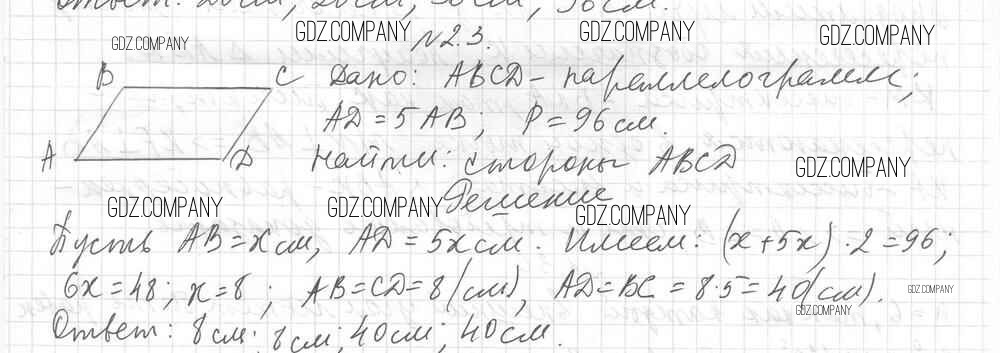 Ответ: 20 см, 20 см, 56 см, 56 см.
GDZ.COMPANY GDZ.COMPANY №2.3. GDZ.COMPANY GDZ.COMPANY
B C Дано: ABCD – параллелограмм;
AD = 5 AB; P = 96 см.
A D Найти: стороны ABCD GDZ.COMPANY
Решение
GDZ.COMPANY GDZ.COMPANY GDZ.COMPANY
Пусть AB = x см, AD = 5x см. Имеем: (x + 5x) · 2 = 96;
6x = 48; x = 8; AB = CD = 8 (см), AD = BC = 8 · 5 = 40 (см). GDZ.COMPANY
GDZ.COMPANY
Ответ: 8 см; 8 см; 40 см; 40 см.